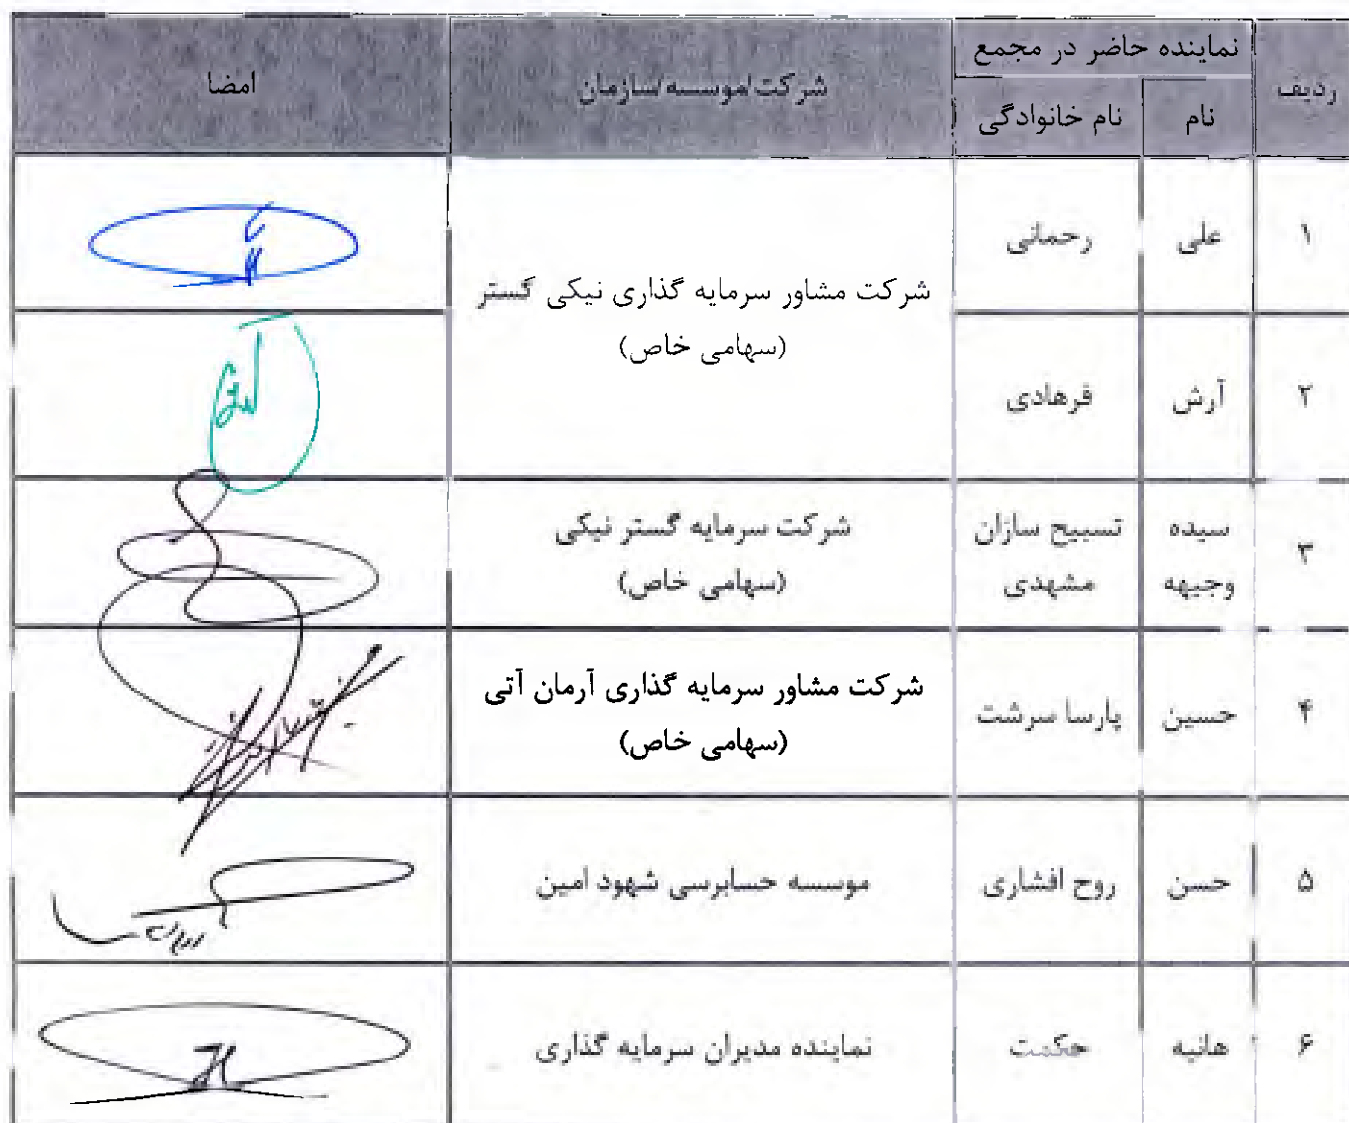 ردیف
نماینده حاضر در مجمع
نام
نام خانوادگی
شرکت/موسسه/سازمان
امضا
۱
علی
رحمانی
شرکت مشاور سرمایه گذاری نیکی گستر
(سهامی خاص)
۲
آرش
فرهادی
۳
سیده
وجیهه
تسبیح سازان
مشهدی
شرکت سرمایه گستر نیکی
(سهامی خاص)
۴
حسین
پارسا سرشت
شرکت مشاور سرمایه گذاری آرمان آتی
(سهامی خاص)
۵
حسن
روح افشاری
موسسه حسابرسی شهود امین
۶
هانیه
حکمت
نماینده مدیران سرمایه گذاری